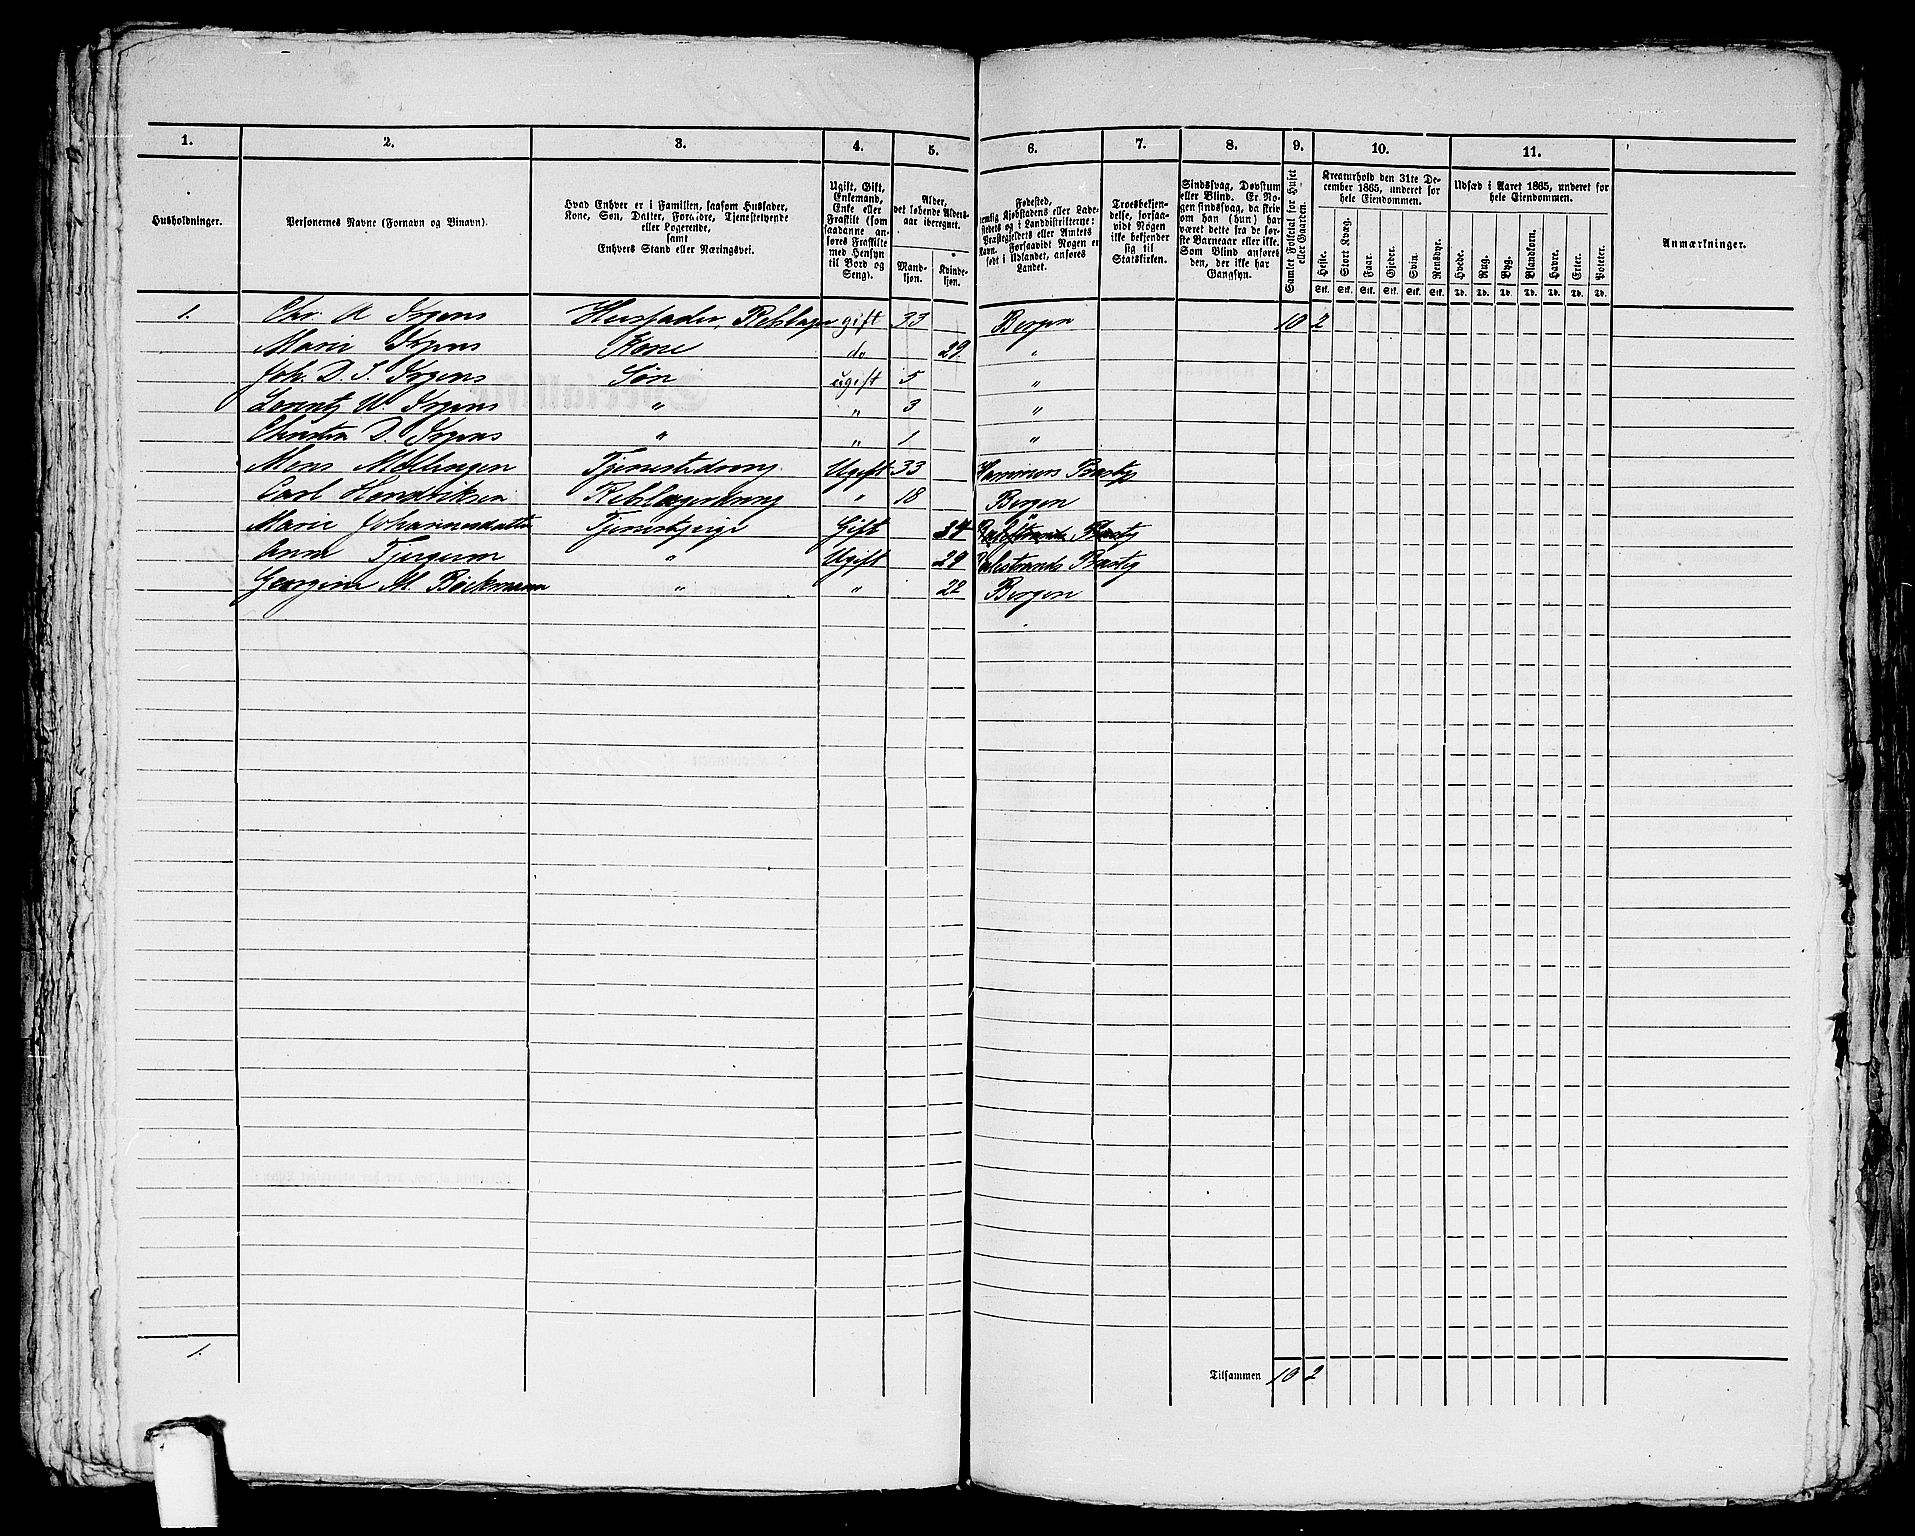 1. 2. 3. 4. 5. 6. 7. 8. 9. 10. 11.
Husholdninger.
Personernes Navne (Fornavn og Binavn).
Hvad Enhver er i Familien, saasom Husfader,
Kone, Søn, Datter, Forældre, Tjenestetyende
eller Logerende,
samt
Enhvers Stand eller Næringsvei.
Ugift, Gift,
Enkemand,
Enke eller
Fraskilt (som
saadanne an-
føres Fraskilte
med Hensyn
til Bord og
Seng).
Alder,
det løbende Alders-
aar iberegnet.
Mand-
kjøn.
Kvinde-
kjøn.
Fødested,
nemlig Kjøbstadens eller Lade-
stedets og i Landdistrikterne:
Præstegjeldets eller Amtets
Navn.
Forsaavidt Nogen er
født i Udlandet, anføres
Landet.
Troesbekjen-
delse, forsaa-
vidt Nogen
ikke bekjender
sig til
Statskirken.
Sindssvag, Døvstum
eller Blind. Er No-
gen sindssvag, da skriv
om han (hun) har
været dette fra de før-
ste Barneaar eller ikke.
Som Blind anføres
den, der ikke har
Gangsyn.
Samlet Folketal for Huset
eller Gaarden.
Kreaturhold den 31te De-
cember 1865, underet for
hele Eiendommen.
Heste. Stort Kvæg. Faar. Gjeder. Svin. Rensdyr.
Stk. Stk. Stk. Stk. Stk. Stk.
Udsæd i Aaret 1865, underet for
hele Eiendommen.
Hvede. Rug. Byg. Blandkorn. Havre. Erter. Poteter.
Td. Td. Td. Td. Td. Td. Td.
Anmærkninger.
1. Chr. A Irgens Husfader, Rebslager gift 33 Bergen 10 2
Marie Irgens Kone do 29 "
Joh. D. S. Irgens Søn ugift 5 "
Lorentz W. Irgens " " 3 "
Christen D. Irgens " " 1 "
Mons Mellingen Tjenestedreng Ugift 33 Hammers Præstg
Carl Hendriksen Rebslagerdreng " 18 Bergen
Marie Johannesdatter Tjenestepige Gift 34 Præstg
Anna " Ugift 29 Præstg
Georgine M. Böckmann " " 22 Bergen
1.
Tilsammen 10 2